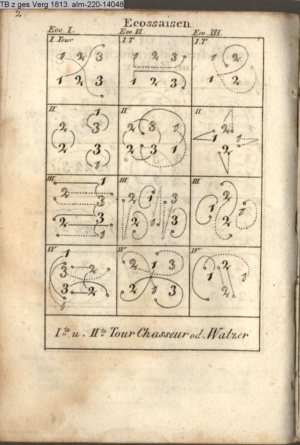 TB z ges Verg 1813. alm-220-14048
2
Ecossaisen
Eco I. Eco II Eco III.
I Tour I T I.T
1 2 3 1 2 3 1 2
1 2 3 1 2 3 1 2
II II II
1
2 3 2 3 1 2
2 3 2 3 1 1 1
1 2
III III III
1 2 1 2 1
2 3 3
2 3 2 3 1 2
1 1
IV IV IV
1
3 2 2 1 3 2
3 2 2 3 1 2 1
1
I.te u. II.te Tour Chasseur od. Walzer